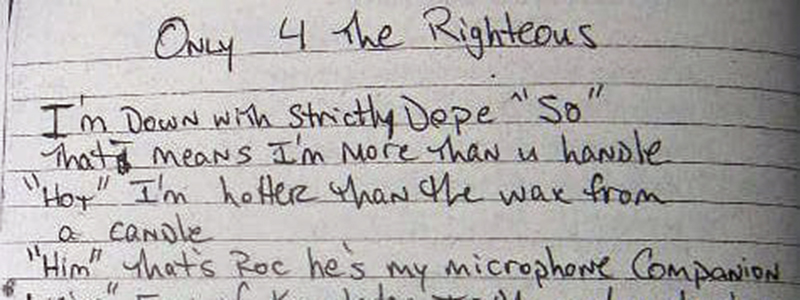 Only 4 the Righteous
I'm Down with Strictly Dope "So"
that means I'm more than u handle
"Hot" I'm hotter than the wax from
a candle
"Him" that's Roc he's my microphone Companion